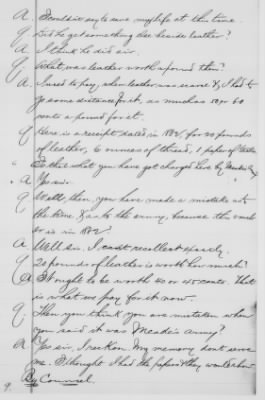 A. I couldn't say to save my life at this time.
Q. Did he get something else beside leather?
A. I think he did sir.
Q. What was leather worth a pound then?
A. I used to pay, when leather was scarce & I had to
go some distance for it, as much as 50 or 60
cents a pound for it.
Q. Here is a receipt dated in 1862 for 20 pounds
of leather, 6 ounces of thread, 1 paper of
Is that what you have got charged here by
A. Yes sir.
Q. Well, then, you have made a mistake as to
the time & as to the army, because this
is in 1862.
A. Well sir, I can't recollect exactly.
Q. 20 pounds of leather is worth how much?
A. It ought to be worth 40 or 45 cents. That
is what we pay for it now.
Q. Then you think you are mistaken when
you said it was Meade's army?
A. Yes sir, I reckon. My memory don't serve
me. I thought I had the papers & they would show
By Counsel.
9.